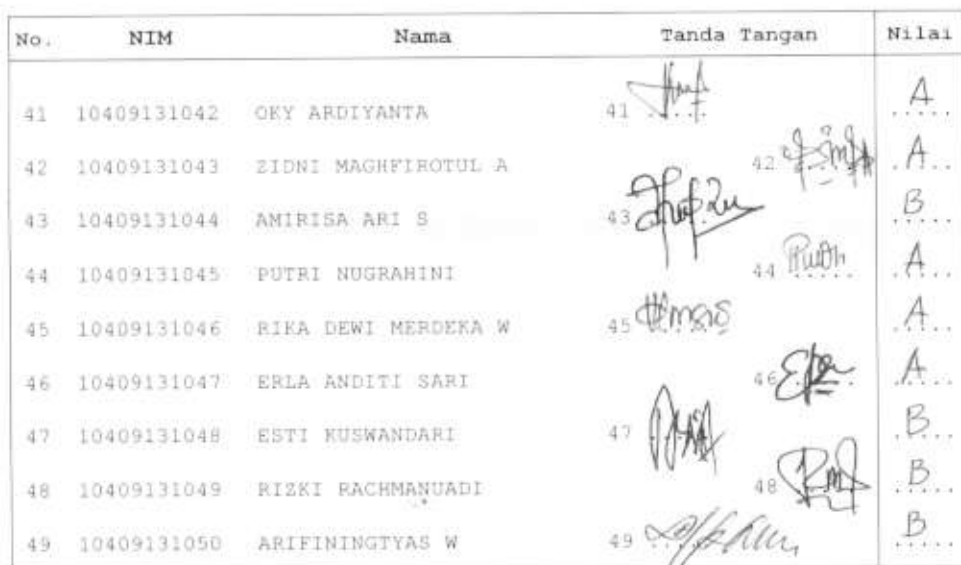 No. NIM Nama Tanda Tangan Nilai
41 10409131042 OKY ARDIYANTA 41 ..... A
42 10409131043 ZIDNI MAGHFIROTUL A 42 ..... A
43 10409131044 AMIRISA ARI S 43 B
44 10409131045 PUTRI NUGRAHINI 44 ..... A
45 10409131046 RIKA DEWI MERDEKA W 45 A
46 10409131047 ERLA ANDITI SARI 46 A
47 10409131048 ESTI KUSWANDARI 47 B
48 10409131049 RIZKI RACHMANUADI 48 B
49 10409131050 ARIFININGTYAS W 49 B